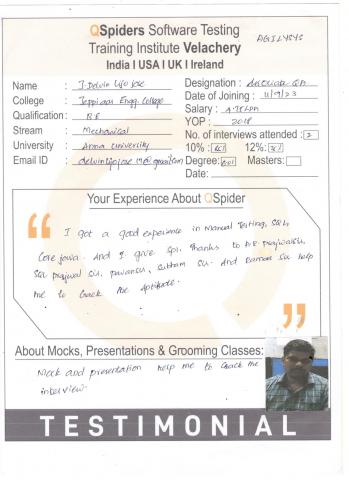 QSpiders Software Testing
AGILYSYS
Training Institute Velachery
India I USA I UK I Ireland
Name : J. Delvin Lijo Jose
Designation : Associate QA
College : Jeppiaar Engg. College
Date of Joining : 11/9/23
Qualification : B.E
Salary :
Stream : Mechanical
YOP : 2018
University : Anna University
No. of interviews attended : 2
10% : 12% :
Email ID : @gmail.com
Degree: Masters:
Date:
Your Experience About QSpider
I got a good experience in Manual Testing, SQL,
Core java. And I give Spl. Thanks to
Sir, Prajwal Sir, Pawansir, Subham Sir. And Raman Sir help
me to Crack the Aptitude.
About Mocks, Presentations & Grooming Classes:
Mock and presentation help me to Crack the
interview.
TESTIMONIAL